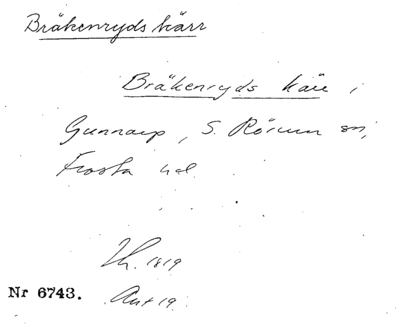 Bräkenryds kärr
Bräkenryds kärr i
Gunnarp, S. Rörum sn,
Frosta hd.
1819
Nr 6743. Akt 19